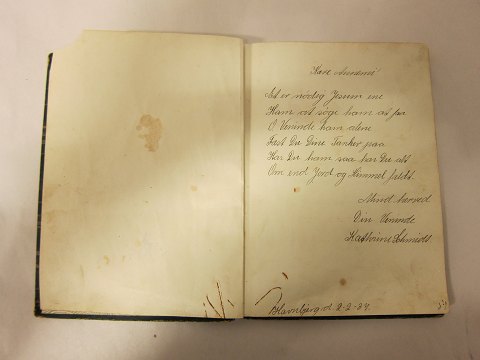 Kære Annemi
Et er nødig Jesum ene
Ham at søge ham at faa
O Veninde ham alene
Fæst Du Dine Tanker paa
Har Du ham saa har Du alt
Om end Jord og Himmel faldt.
Mind herved
Din Veninde
Kathrine Schmidt
d 2-2-34